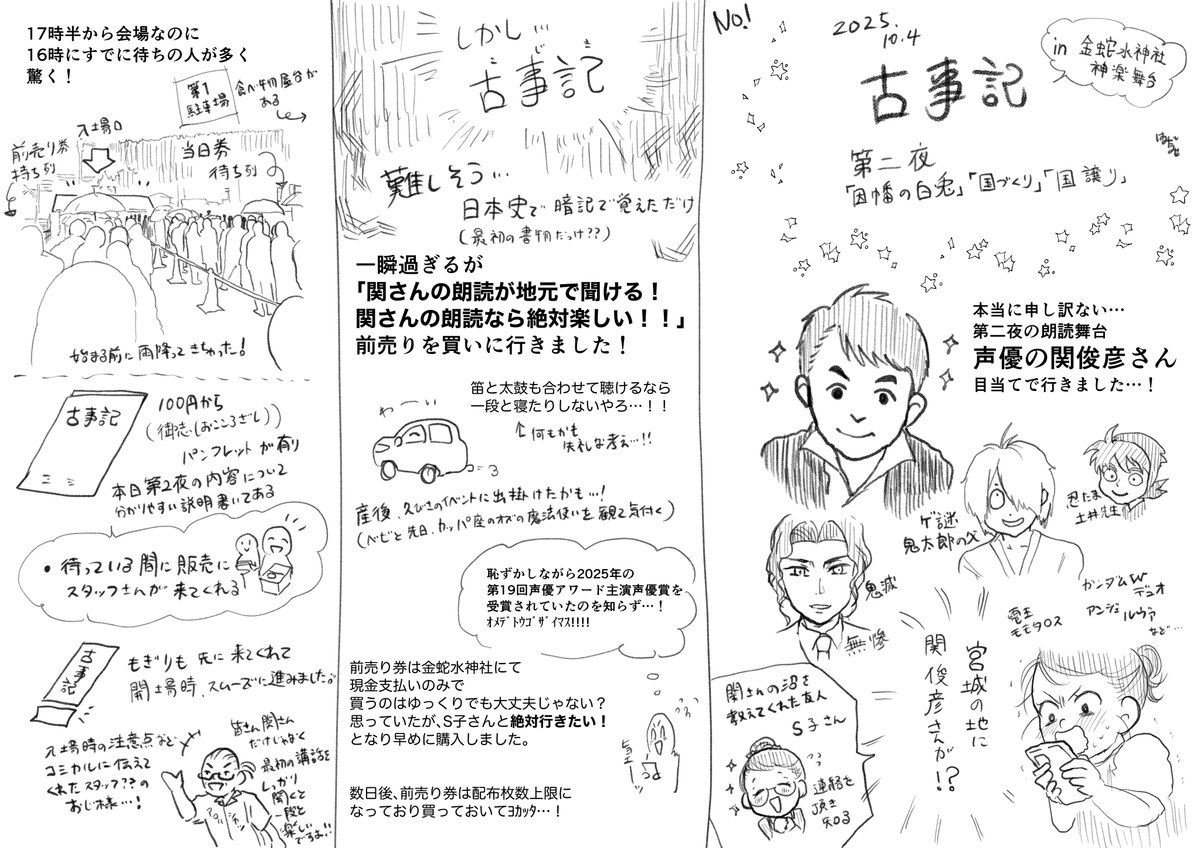 No.1
2025.
10.4
in 金蛇水神社
神楽舞台
古事記
第二夜
「因幡の白兎」「国づくり」「国譲り」
本当に申し訳ない…
第二夜の朗読舞台
声優の関俊彦さん
目当てで行きました…！
忍たま
土井先生
ゲ謎
鬼太郎の父
鬼滅
無惨
ガンダムW
デュオ
アンジェ
ルヴァ
など…
電王
モモタロス
宮城の地に
関俊彦さんが!?
関さんの沼を
教えてくれた友人
S子さん
連絡を
頂き
知る
しかし…
古事記
じ
き
難しそう…
日本史で暗記で覚えただけ
(最初の書物だっけ??)
一瞬過ぎるが
「関さんの朗読が地元で聞ける！
関さんの朗読なら絶対楽しい！！」
前売りを買いに行きました！
笛と太鼓も合わせて聴けるなら
一段と寝たりしないやろ…！！
↑何もかも
失礼な考え…!!
わーい
産後、久びさのイベントに出掛けたかも…!
(ベビと先日、カッパ座のオズの魔法使いを観て気付く)
恥ずかしながら2025年の
第19回声優アワード主演声優賞を
受賞されていたのを知らず…！
ｵﾒﾃﾞﾄｳｺﾞｻﾞｲﾏｽ!!!!
前売り券は金蛇水神社にて
現金支払いのみで
買うのはゆっくりでも大丈夫じゃない？
思っていたが、S子さんと絶対行きたい！
となり早めに購入しました。
数日後、前売り券は配布枚数上限に
なっており買っておいてﾖｶｯﾀ…！
17時半から会場なのに
16時にすでに待ちの人が多く
驚く！
第1
駐車場
食べ物屋台が
ある
入場口
前売り券
待ち列
当日券
待ち列
始まる前に雨降ってきちゃった!
古事記
100円から
(御志(おこころざし))
パンフレットが有り
本日第2夜の内容について
分かりやすい説明書いてある
・待っている間に販売に
スタッフさんが来てくれる
古事記
もぎりも先に来てくれて
開場時、スムーズに進みました。
入場時の注意点など
コミカルに伝えて
くれたスタッフ??の
おじ様…!
皆さん関さん
だけじゃなく
最初の講話を
しっかり
聞くと
一段と
楽しい
ですよ!!